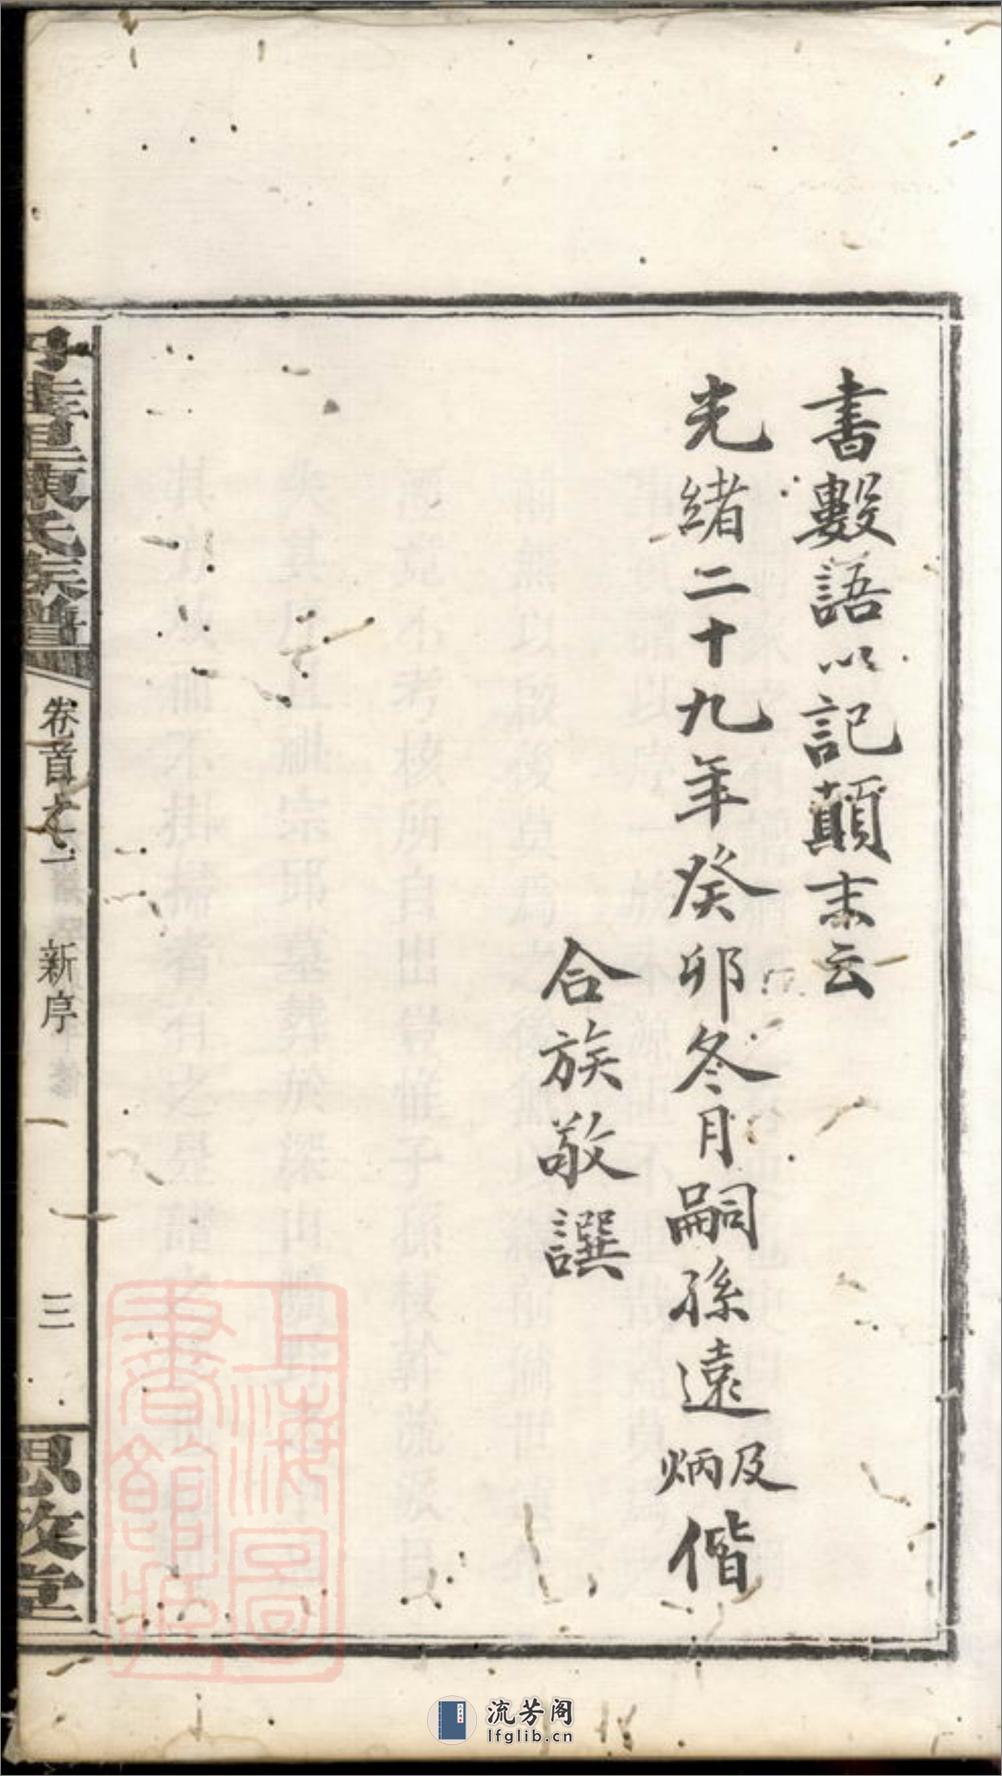 書數語以記顛末云
光緒二十九年癸卯冬月嗣孫遠炳及偕
合族敬譔
陳氏族譜
卷首之一
新序
三
思敬堂
上海圖書館藏
流芳阁
lfglib.cn